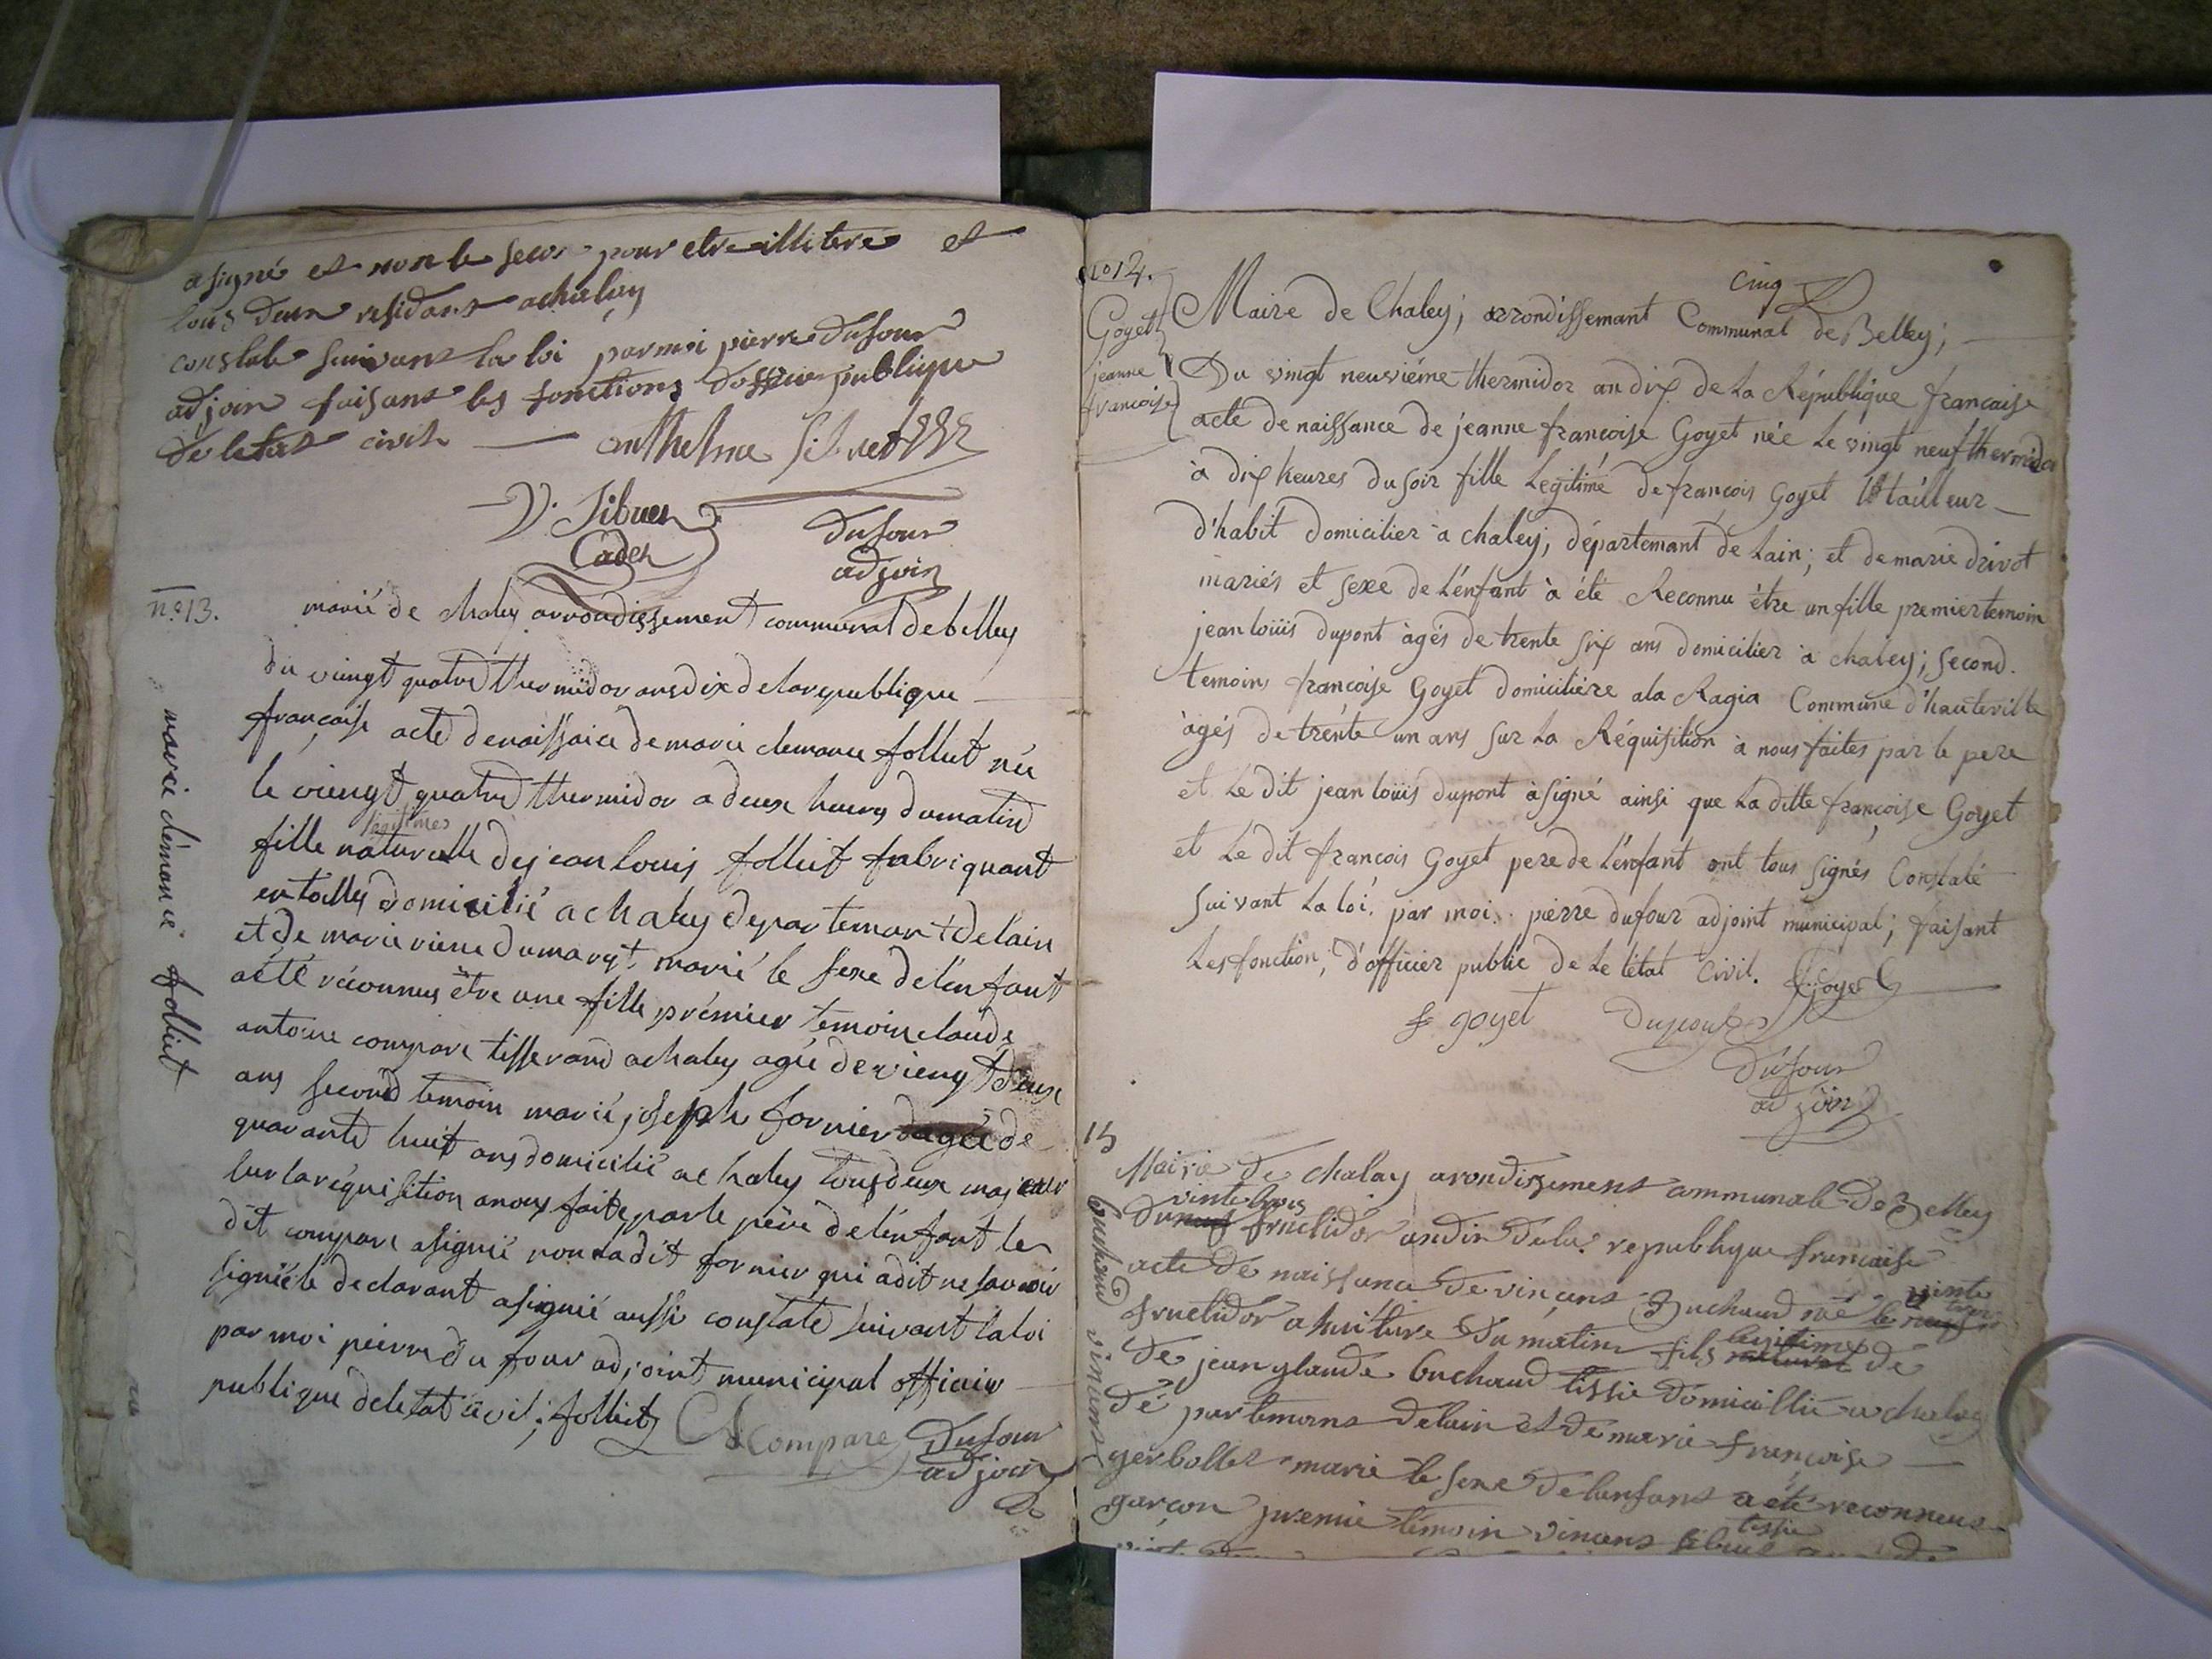 asigné et non le secon pour etre illitere et
tous deux residans a chaley
constaté suivans la loi par moi pierre Dufour
adjoin faisans les fonctions publique
de letat civil anthelme Sibuet
Sibuet
Cadet
Dufour
adjoin
n.o 13.
marie clémance folliet
marié de chaley arrondissement communal de belley
du vingt quatre thermidor ans dix de la republique
française acte denaissaice de marie clemance folliet née
le vingt quatre thermidor a deux heures du matin
legitimes
fille naturelle de jean louis folliet fabriquant
en toilles domicilié a chaley departemant delain
et de marie riene dumaryt marié le sexe delenfant
aété réconnus être une fille prémier temoin claude
antoine compare tisserand a chaley agée de viengt deux
ans second temoin marie joseph fornier agée de
quarante huit ans domicilié a chaley tous deux majeur
sur la réquisition anous faite par le père delenfant le
dit compare asignié non ladit fornier qui adit ne savoir
signié le declarant asignié aussi constaté suivant laloi
par moi peirre du four adjoint municipal officier
publique deletat civil; folliet
Compare Dufour
adjoin
cinq
no 14.
Goyet
jeanne
françoise
Maire de Chaley; arrondissemant Communal de Belley;
Du vingt neuviéme thermidor an dix de la République francaise
acte de naissance de jeanne françoise Goyet née le vingt neuf thermidor
à dix heures du soir fille Legitimé de françois Goyet tailleur
d'habit domicilier à chaley, départemant de Lain; et de marie drivot
mariés et sexe de L'énfant à été Reconnu être un fille premier temoin
jean loüis dupont àgés de trente six ans domicilier à chaley; second
temoins françoise Goyet domiciliére ala Ragia Commune d'hauteville
àgés de trénte un ans sur La Réquisition à nous faites par le pere
et Le dit jean loüis dupont à signé ainsi que La ditte françoise Goyet
et Le dit francois Goyet pere de L'énfant ont tous signés Constaté
suivant La loi. par moi. pierre dufour adjoint municipal; faisant
Les fonction, d'officier public de Le tétat Civil. fGoyet
f goyet Dupont
Dufour
adjoin
15
buchaud vincans
Mairie de chalay arondissement communale de Belley
vinte trois
du neuf fructidor an dix de la republique française
acte de naissance de vincans Buchaud né le neuf
vinte trois
fructidor a huiture du matin fils naturel de
legitime
de jean glaude buchaud tissie domicillié a chaley
dé partemans delain et de marie françoise
gerbollet marié le sexe delanfans a été reconneus
garçon premié témoin vincans sibuet
tissie